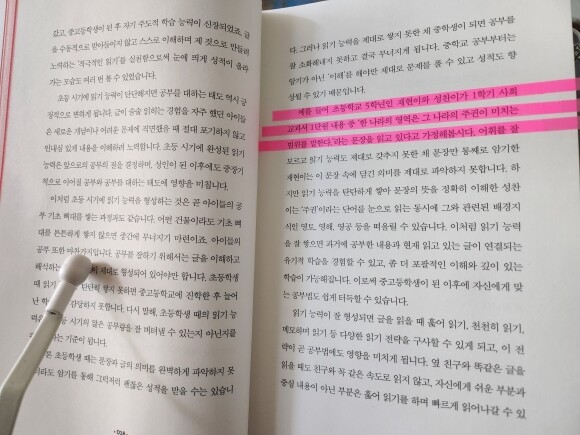 갔고, 중고등학생이 된 후 자기 주도적 학습 능력이 신장되었죠. 글
을 수동적으로 받아들이지 않고 스스로 이해하며 제 것으로 만들려
노력하는 '적극적인 읽기'를 실천함으로써 눈에 띄게 성적이 올라
가는 모습도 여러 번 볼 수 있었습니다.
초등 시기에 읽기 능력이 단단해지면 공부를 대하는 태도 역시 긍
정적으로 변하게 됩니다. 글이 술술 읽히는 경험을 자주 했던 아이들
은 새로운 개념이나 어려운 문제에 직면했을 때 절대 포기하지 않고
인내심 있게 내용을 이해하려 노력합니다. 초등 시기에 완성된 읽기
능력은 앞으로의 공부의 질을 결정하며, 성인이 된 이후에도 중장기
적으로 이어질 공부와 공부를 대하는 태도에 영향을 미칩니다.
이처럼 초등 시기에 읽기 능력을 형성하는 것은 곧 아이들의 공
부 기초 뼈대를 쌓는 과정과도 같습니다. 어떤 건물이라도 기초 뼈
대를 튼튼하게 쌓지 않으면 중간에 무너지기 마련이죠. 아이들의
공부 또한 마찬가지입니다. 공부를 잘하기 위해서는 글을 이해하고
해석하는 제대로 형성되어 있어야만 합니다. 초등학생
때 읽기 단단히 쌓지 못하면 중고등학교에 진학한 후 늘어
난 학 감당하지 못합니다. 다시 말해, 초등학생 때의 읽기 능
력은 시기의 많은 공부량을 잘 버텨낼 수 있는지 아닌지를
하는 기준이 됩니다.
초등학생 때는 문장과 글의 의미를 완벽하게 파악하지 못
하더라도 암기를 통해 그럭저럭 괜찮은 성적을 받을 수는 있습니
다. 그러나 읽기 능력을 제대로 쌓지 못한 채 중학생이 되면 공부를
잘 소화해내지 못하고 결국 무너지게 됩니다. 중학교 공부부터는
암기가 아닌 '이해'를 해야만 제대로 문제를 풀 수 있고 성적도 향
상될 수 있기 때문입니다.
예를 들어 초등학교 5학년인 재현이와 성찬이가 1학기 사회
교과서 1단원 내용 중 '한 나라의 영역은 그 나라의 주권이 미치는
범위를 말한다'라는 문장을 읽고 있다고 가정해봅시다. 어휘를 잘
모르고 읽기 능력도 제대로 갖추지 못한 채 문장만 통째로 암기한
재현이는 이 문장 속에 담긴 의미를 제대로 파악하지 못합니다. 하
지만 읽기 능력을 탄탄하게 쌓아 문장의 뜻을 정확히 이해한 성찬
이는 '주권'이라는 단어를 눈으로 읽는 동시에 그와 관련된 배경지
식인 영토, 영해, 영공 등을 떠올릴 수 있게 됩니다. 이처럼 읽기 능력
을 잘 쌓으면 과거에 공부한 내용과 현재 읽고 있는 글이 연결되는
유기적 학습을 경험할 수 있고, 좀 더 포괄적인 이해와 깊이 있는
학습이 가능해집니다. 이로써 중고등학생이 된 이후에 자신에게 맞
는 공부법도 쉽게 터득할 수 있습니다.
읽기 능력이 잘 형성되면 글을 읽을 때 훑어 읽기, 천천히 읽기,
메모하며 읽기 등 다양한 읽기 전략을 구사할 수 있게 되고, 이 전
략이 곧 공부법에도 영향을 미치게 됩니다. 옆 친구와 똑같은 글을
읽을 때도 친구와 꼭 같은 속도로 읽지 않고, 자신에게 쉬운 부분과
중심 내용이 아닌 부분은 훑어 읽기를 하며 빠르게 읽어나갈 수 있